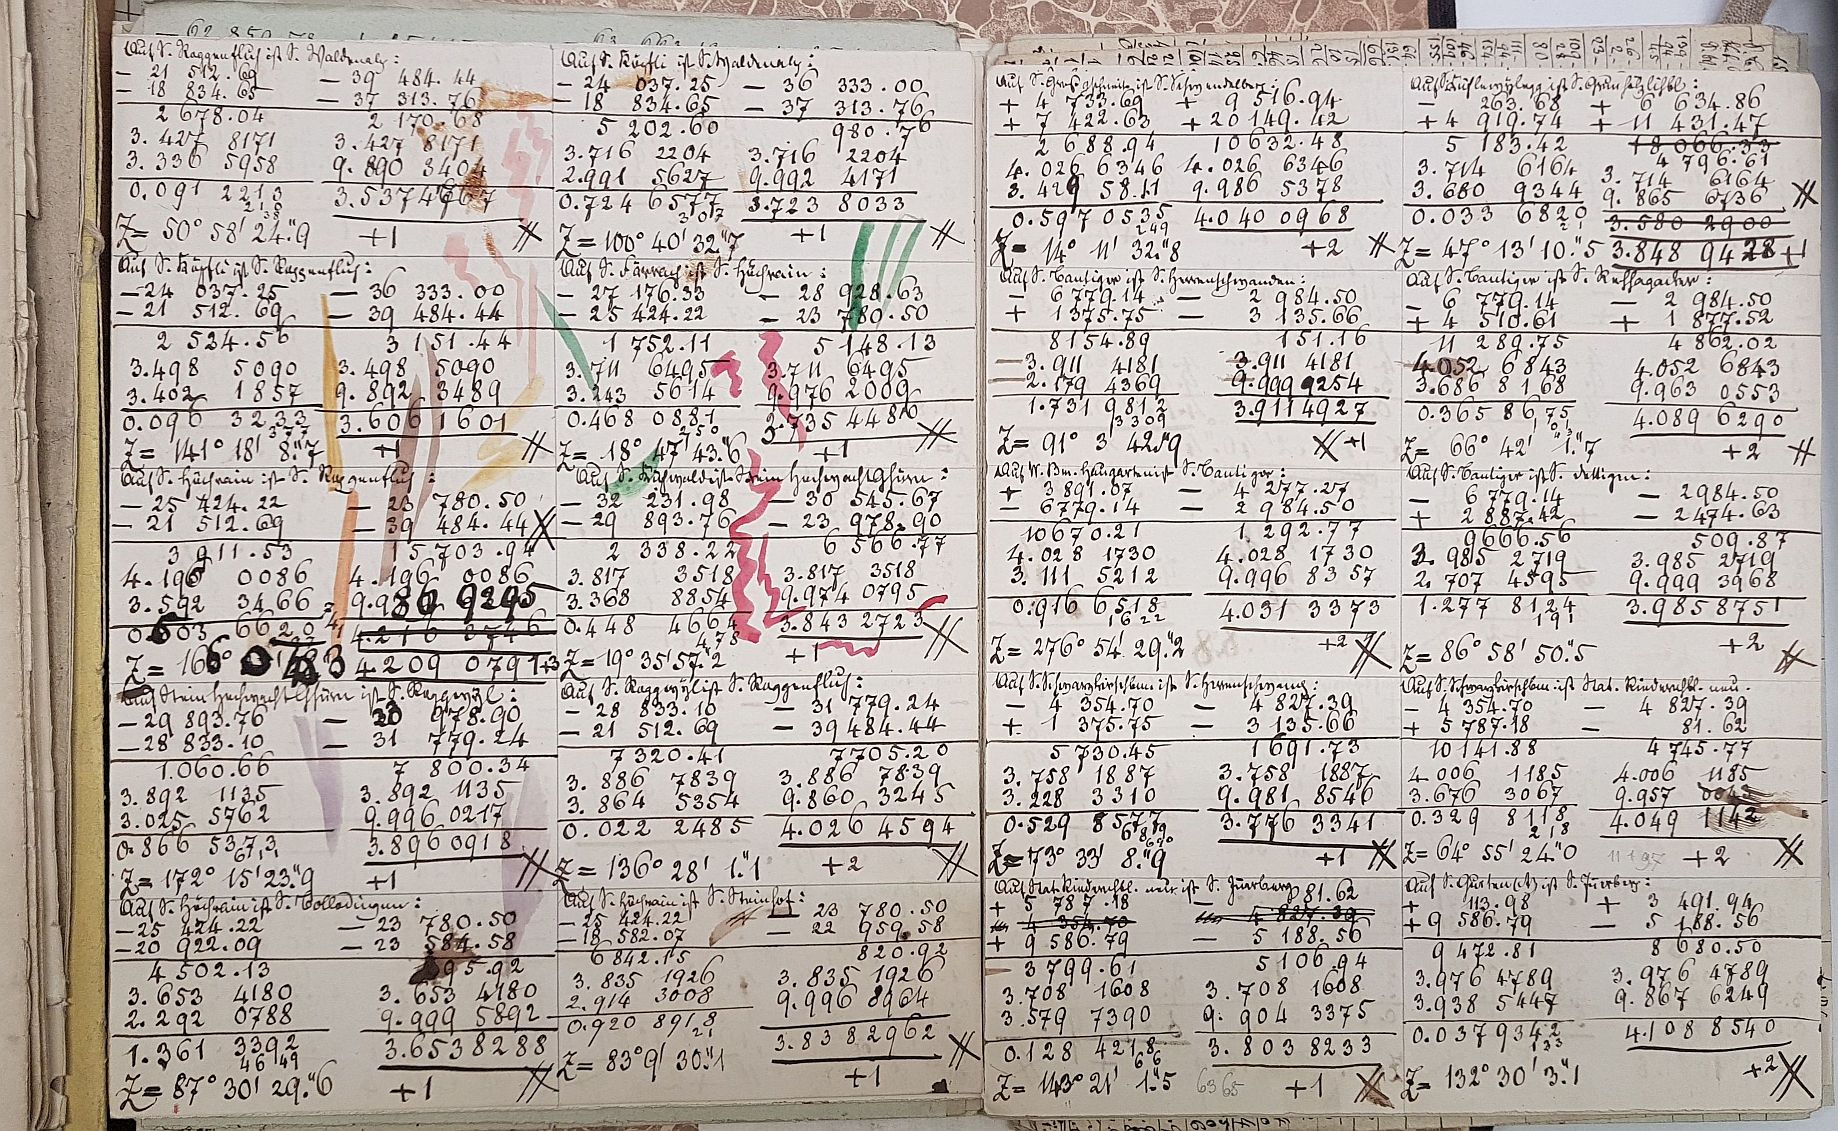 Auf S. Roggenfluh ist S. Waldenalp:
– 21 512.69 – 39 484.44
– 18 834.65 – 37 313.76
2 678.04 2 170.68
3.427 8171 3.427 8171
3.336 5958 9.890 3404
0.091 2213 3.5374767
Z= 50° 58' 24."9 +1
– 24 037.25 – 36 333.00
– 21 512.69 – 39 484.44
2 524.56 3 151.44
3.498 5090 3.498 5090
3.402 1857 9.892 3489
0.096 3233 3.606 1601
Z= 141° 18' 8."7 +1
Auf S. Hüchrain ist S. Roggenfluh:
– 25 424.22 – 23 780.50
– 21 512.69 – 39 484.44
3 911.53 15 703.94
4.196 0086 4.196 0086
3.592 3466
4.209 0791 +3
Auf Stein Hochwacht Ghürn ist S. Roggwyl:
– 29 893.76
– 28 833.10 – 31 779.24
1.060.66 7 800.34
3.892 1135 3.892 1135
3.025 5762 9.996 0217
0.866 5373 3.896 0918
Z= 172° 15' 23."9 +1
Auf S. Hüchrain ist S. Bolledingen:
– 25 424.22 – 23 780.50
– 20 922.09 – 23 584.58
4 502.13
3.653 4180 3.653 4180
2.292 0788 9.999 5892
1.361 3392 3.6538288
46 49
Z= 87° 30' 29."6 +1
– 24 037.25 – 36 333.00
– 18 834.65 – 37 313.76
5 202.60 980.76
3.716 2204 3.716 2204
2.991 5627 9.992 4171
0.724 6577 3.723 8033
Z= 100° 40' 32."7 +1
Auf S. Farrach ist S. Hüchrain:
– 27 176.33 – 28 928.63
– 25 424.22 – 23 780.50
1 752.11 5 148.13
3.711 6495 3.711 6495
3.243 5614 9.976 2009
0.468 0881 3.735 4486
250
Z= 18° 47' 43."6 +1
– 32 231.98 – 30 545.67
– 29 893.76 – 23 978.90
2 338.22 6 566.77
3.817 3518 3.817 3518
3.368 8854 9.974 0795
0.448 4664 3.843 2723
478
Z= 19° 35' 57."2 +1
Auf S. Roggwyl ist S. Roggenfluh:
– 28 833.10 – 31 779.24
– 21 512.69 – 39 484.44
7320.41 7705.20
3.886 7839 3.886 7839
3.864 5354 9.860 3245
0.022 2485 4.026 4594
Z= 136° 28' 1."1 +2
Auf S. Hüchrain ist S. Steinhof:
– 25 424.22 – 23 780.50
– 18 582.07 – 22 959.58
6 842.15 820.92
3.835 1926 3.835 1926
2.914 3008 9.996 8964
0.920 8918 3.8382962
21
Z= 83° 9' 30."1 +1
+ 4 733.69 + 9 516.94
+ 7 422.63 + 20 149.42
2 688.94 10632.48
4.026 6346 4.026 6346
3.429 5811 9.986 5378
0.597 0535 4.040 0968
249
Z= 14° 11' 32."8 +2
Auf S. Bantiger ist S. Herrenschwanden:
– 6 779.14 – 2 984.50
+ 1375.75 – 3 135.66
8154.89 151.16
3.911 4181 3.911 4181
2.179 4369 9.999 9254
1.731 9812 3.9114927
3309
Z= 91° 3' 42."9 +1
+ 3 891.07 – 4 277.27
– 6779.14 – 2 984.50
10670.21 1 292.77
4.028 1730 4.028 1730
3.111 5212 9.996 8357
0.916 6518 4.031 3373
1622
Z= 276° 54' 29."2 +2
– 4 354.70 – 4 827.39
+ 1 375.75 – 3 135.66
5 730.45 1691.73
3.758 1887 3.758 1887
3.228 3310 9.981 8546
0.529 8577 3.776 3341
Z= 73° 33' 8."9 +1
+ 5 787.18 – 81.62
4 354.70 4 827.39
+ 9 586.79 – 5 188.56
3799.61 5106.94
3.708 1608 3.708 1608
3.579 7390 9.904 3375
0.128 4218 3.803 8233
66
Z= 143° 21' 1."5 6365 +1
– 263.68 + 6 634.86
+ 4 919.74 + 11 431.47
5 183.42 18 066.33
4 796.61
3.714 6164 3.714 6164
3.680 9344 9.865 6736
0.033 6820 3.580 2900
Z= 47° 13' 10."5 3.848 9428 +1
– 6 779.14 – 2 984.50
+ 4 510.61 + 1 877.52
11 289.75 4 862.02
4.052 6843 4.052 6843
3.686 8168 9.963 0553
0.365 8675 4.089 6290
Z= 66° 42' 1."7 +2
Auf S. Bantiger ist S. Dettigen:
– 6 779.14 – 2984.50
+ 2 887.42 – 2474.63
9666.56 509.87
3.985 2719 3.985 2719
2.707 4595 9.999 3968
1.277 8124 3.9858751
191
Z= 86° 58' 50."5 +2
– 4 354.70 – 4 827.39
+ 5 787.18 – 81.62
10 141.88 4 745.77
4.006 1185 4.006 1185
3.676 3067 9.957
0.329 8118 4.049 1142
218
Z= 64° 55' 24."0 +2
+ 113.98 + 3 491.94
+ 9 586.79 – 5 188.56
9 472.81 8 680.50
3.976 4789 3.976 4789
3.938 5447 9.867 6249
0.037 9342 4.108 8540
133
Z= 132° 30' 3."1 +2